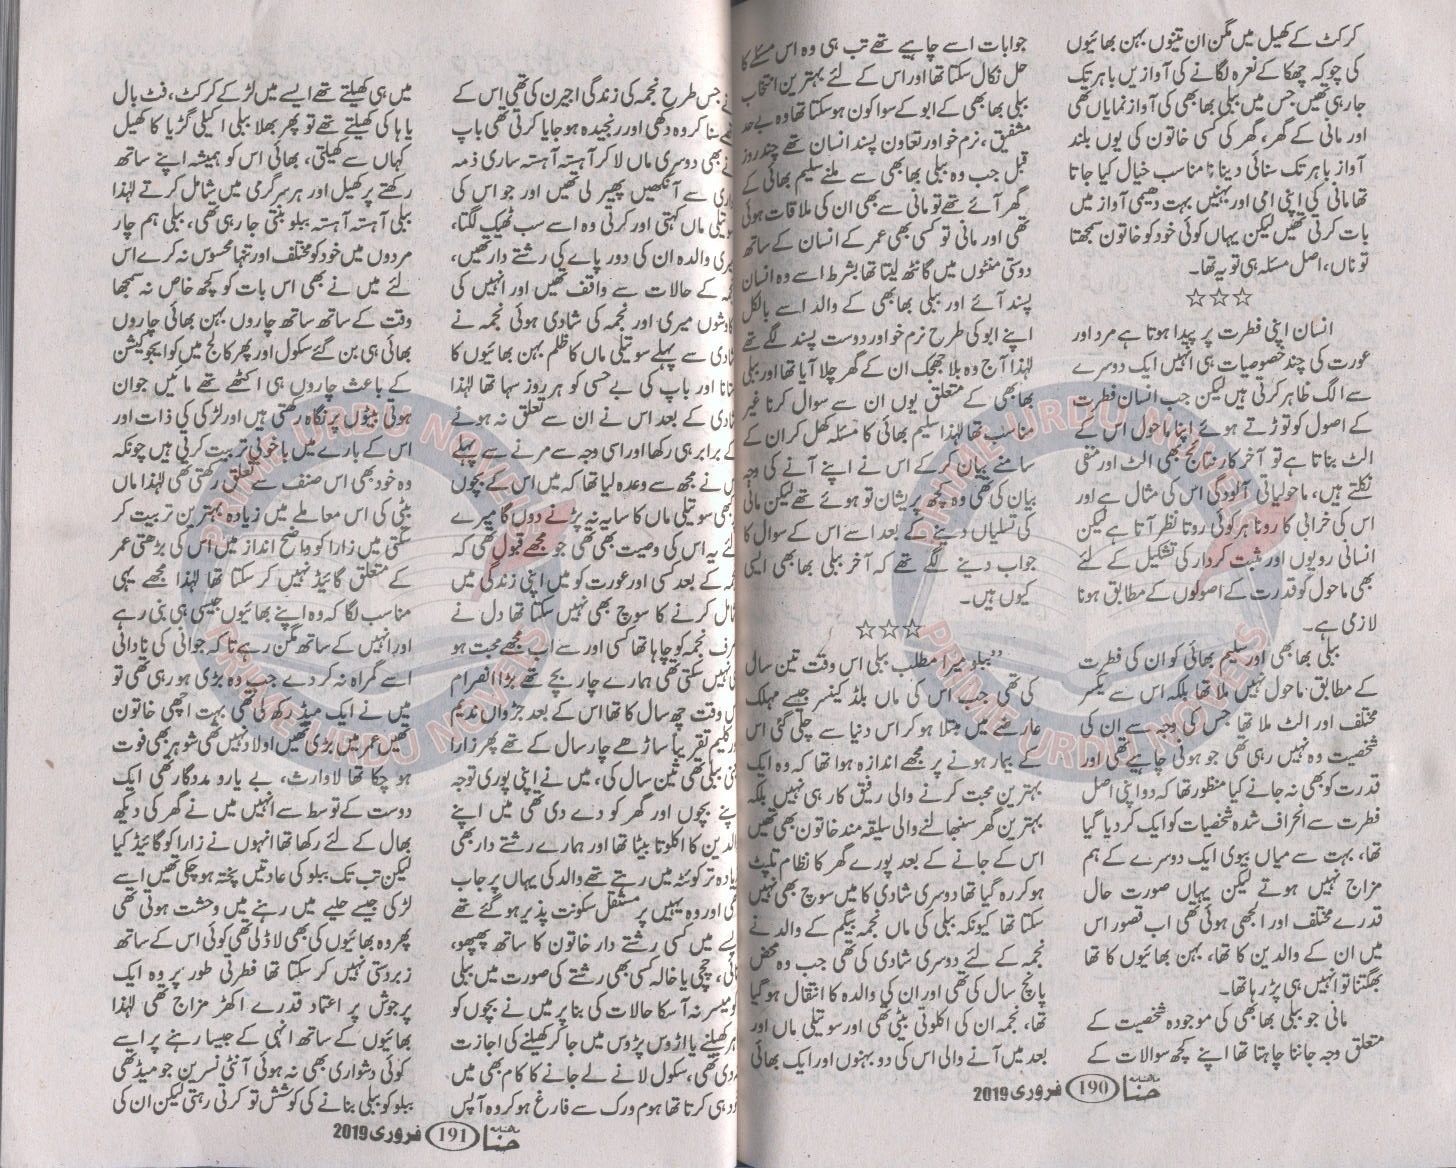 کرکٹ کے کھیل میں مگن ان تینوں بہن بھائیوں
کی چوکہ چھکا کے نعرہ لگانے کی آوازیں باہر تک
جا رہی تھیں جس میں ببلی بھابھی کی آواز نمایاں تھی
اور مانی کے گھر، گھر کی کسی خاتون کی یوں بلند
آواز باہر تک سنائی دینا نا مناسب خیال کیا جاتا
تھا مانی کی اپنی امی اور بہنیں بہت دھیمی آواز میں
بات کرتی تھیں لیکن یہاں کوئی خود کو خاتون سمجھتا
تو ناں، اصل مسئلہ ہی تو یہ تھا۔
☆☆☆
انسان اپنی فطرت پر پیدا ہوتا ہے مرد اور
عورت کی چند خصوصیات ہی انہیں ایک دوسرے
سے الگ ظاہر کرتی ہیں لیکن جب انسان فطرت
کے اصول کو توڑتے ہوئے اپنا ماحول اس کے
الٹ بناتا ہے تو آخر کار نتائج بھی الٹ اور منفی
نکلتے ہیں، ماحولیاتی آلودگی اس کی مثال ہے اور
اس کی خرابی کا رونا ہر کوئی روتا نظر آتا ہے لیکن
انسانی رویوں اور مثبت کردار کی تشکیل کے لئے
بھی ماحول کو قدرت کے اصولوں کے مطابق ہونا
لازمی ہے۔
ببلی بھابھی اور سلیم بھائی کو ان کی فطرت
کے مطابق ماحول نہیں ملا تھا بلکہ اس سے یکسر
مختلف اور الٹ ملا تھا جس کی وجہ سے ان کی
شخصیت وہ نہیں رہی تھی جو ہونی چاہیے تھی اور
قدرت کو بھی نہ جانے کیا منظور تھا کہ دو اپنی اصل
فطرت سے انحراف شدہ شخصیات کو ایک کر دیا گیا
تھا، بہت سے میاں بیوی ایک دوسرے کے ہم
مزاج نہیں ہوتے لیکن یہاں صورت حال
قدرے مختلف اور الجھی ہوئی تھی اب قصور اس
میں ان کے والدین کا تھا، بہن بھائیوں کا تھا
بھگتنا تو انہیں ہی پڑ رہا تھا۔
مانی جو ببلی بھابھی کی موجودہ شخصیت کے
متعلق وجہ جاننا چاہتا تھا اپنے کچھ سوالات کے
جوابات اسے چاہیے تھے تب ہی وہ اس مسئلے کا
حل نکال سکتا تھا اور اس کے لئے بہترین انتخاب
ببلی بھابھی کے ابو کے سوا کون ہو سکتا تھا وہ بے حد
مشفیق، نرم خو اور تعاون پسند انسان تھے چند روز
قبل جب وہ ببلی بھابھی سے ملنے سلیم بھائی کے
گھر آئے تھے تو مانی سے بھی ان کی ملاقات ہوئی
تھی اور مانی تو کسی بھی عمر کے انسان کے ساتھ
دوستی منٹوں میں گانٹھ لیتا تھا بشرط اسے وہ انسان
پسند آئے اور ببلی بھابھی کے والد اسے بالکل
اپنے ابو کی طرح نرم خو اور دوست پسند لگے تھے
لہٰذا آج وہ بلا جھجک ان کے گھر چلا آیا تھا اور ببلی
بھابھی کے متعلق یوں ان سے سوال کرنا غیر
مناسب تھا لہٰذا سلیم بھائی کا مسئلہ کھل کر ان کے
سامنے بیان کر کے اس نے اپنے آنے کی وجہ
بیان کی تھی وہ کچھ پریشان تو ہوئے تھے لیکن مانی
کی تسلیاں دینے کے بعد اسے اس کے سوال کا
جواب دینے لگے تھے کہ آخر ببلی بھابھی ایسی
کیوں ہیں۔
☆☆☆
”ببلو میرا مطلب ببلی اس وقت تین سال
کی تھی جب اس کی ماں بلڈ کینسر جیسے مہلک
عارضے میں مبتلا ہو کر اس دنیا سے چلی گئی اس
کے بیمار ہونے پر مجھے اندازہ ہوا تھا کہ وہ ایک
بہترین محبت کرنے والی رفیق کار ہی نہیں بلکہ
بہترین گھر سنبھالنے والی سلیقہ مند خاتون بھی تھیں
اس کے جانے کے بعد پورے گھر کا نظام تلپٹ
ہو کر رہ گیا تھا دوسری شادی کا میں سوچ بھی نہیں
سکتا تھا کیونکہ ببلی کی ماں نجمہ بیگم کے والد نے
نجمہ کے لئے دوسری شادی کی تھی جب وہ محض
پانچ سال کی تھی اور ان کی والدہ کا انتقال ہو گیا
تھا، نجمہ ان کی اکلوتی بیٹی تھی اور سوتیلی ماں اور
بعد میں آنے والی اس کی دو بہنوں اور ایک بھائی
ماہنامہ حنا 190 فروری 2019
جس طرح نجمہ کی زندگی اجیرن کی تھی اس کے
سنا کر وہ دکھی اور رنجیدہ ہو جایا کرتی تھی باپ
بھی دوسری ماں لا کر آہستہ آہستہ ساری ذمہ
سے آنکھیں پھیر لی تھیں اور جو اس کی
ماں کہتی اور کرتی وہ اسے سب ٹھیک لگتا،
والدہ ان کی دور پار کی رشتے دار تھیں،
کے حالات سے واقف تھیں اور انہیں کی
میری اور نجمہ کی شادی ہوئی نجمہ نے
سے پہلے سوتیلی ماں کا ظلم بہن بھائیوں کا
اور باپ کی بے حسی کو ہر روز سہا تھا لہٰذا
کے بعد اس نے ان سے تعلق نہ ہونے
برابر ہی رکھا اور اسی وجہ سے مرنے سے پہلے
نے مجھ سے وعدہ لیا تھا کہ میں اس کے بچوں
سوتیلی ماں کا سایہ نہ پڑنے دوں گا میرے
یہ اس کی وصیت بھی تھی جو مجھے قبول تھی کہ
کے بعد کسی اور عورت کو میں اپنی زندگی میں
کرنے کا سوچ بھی نہیں سکتا تھا دل نے
نجمہ کو چاہا تھا کسی اور سے اب مجھے محبت ہو
نہیں سکتی تھی ہمارے چار بچے تھے بڑا انصرام
وقت چھ سال کا تھا اس کے بعد جڑواں ندیم
کلیم تقریباً ساڑھے چار سال کے تھے پھر زارا
ببلی تھی تین سال کی، میں نے اپنی پوری توجہ
بچوں اور گھر کو دے دی تھی میں اپنے
کا اکلوتا بیٹا تھا اور ہمارے رشتے دار بھی
تر کوئٹہ میں رہتے تھے والد کی یہاں پر جاب
اور وہ یہیں پر مستقل سکونت پذیر ہو گئے تھے
میں کسی رشتے دار خاتون کا ساتھ پھپھو،
چچی یا خالہ کسی بھی رشتے کی صورت میں ببلی
میسر نہ آ سکا حالات کی بنا پر میں نے بچوں کو
کھیلنے یا اڑوس پڑوس میں جا کر کھیلنے کی اجازت
تھی، سکول لانے لے جانے کا کام بھی میں
ہی کرتا تھا ہوم ورک سے فارغ ہو کر وہ آپس
میں ہی کھیلتے تھے ایسے میں لڑکے کرکٹ، فٹ بال
یا ہاکی کھیلتے تھے تو پھر بھلا ببلی اکیلی گڑیا کا کھیل
کہاں سے کھیلتی، بھائی اس کو ہمیشہ اپنے ساتھ
رکھتے ہر کھیل اور ہر سرگرمی میں شامل کرتے لہٰذا
ببلی آہستہ آہستہ ببلو بنتی جا رہی تھی، ببلی ہم چار
مردوں میں خود کو مختلف اور تنہا محسوس نہ کرے اس
لئے میں نے بھی اس بات کو کچھ خاص نہ سمجھا
وقت کے ساتھ ساتھ چاروں بہن بھائی چاروں
بھائی ہی بن گئے سکول اور پھر کالج میں کو ایجوکیشن
کے باعث چاروں ہی اکٹھے تھے مائیں جوان
ہوتی بیٹیوں پر نگاہ رکھتی ہیں اور لڑکی کی ذات اور
اس کے بارے میں با خوبی تربیت کرتی ہیں چونکہ
وہ خود بھی اس صنف سے تعلق رکھتی تھی لہٰذا ماں
بیٹی کی اس معاملے میں زیادہ بہترین تربیت کر
سکتی میں زارا کو واضح انداز میں اس کی بڑھتی عمر
کے متعلق گائیڈ نہیں کر سکتا تھا لہٰذا مجھے یہی
مناسب لگا کہ وہ اپنے بھائیوں جیسی ہی بنی رہے
اور انہیں کے ساتھ مگن رہے تا کہ جوانی کی نادانی
اسے گمراہ نہ کر دے جب وہ بڑی ہو رہی تھی تو
میں نے ایک میڈ رکھ لی تھی بہت اچھی خاتون
تھیں عمر میں بڑی تھیں اولاد نہیں تھی شوہر بھی فوت
ہو چکا تھا لاوارث، بے یارو مددگار تھی ایک
دوست کے توسط سے انہیں میں نے گھر کی دیکھ
بھال کے لئے رکھا تھا انہوں نے زارا کو گائیڈ کیا
لیکن تب تک ببلو کی عادتیں پختہ ہو چکی تھیں اسے
لڑکی جیسے حلیے میں رہنے میں وحشت ہوتی تھی
پھر وہ بھائیوں کی بھی لاڈلی تھی کوئی اس کے ساتھ
زبردستی نہیں کر سکتا تھا فطرتی طور پر وہ ایک
پرجوش پر اعتماد قدرے اکھڑ مزاج تھی لہٰذا
بھائیوں کے ساتھ انہی کے جیسا رہنے پر اسے
کوئی دشواری بھی نہ ہوئی آنٹی نسرین جو میڈ تھی
ببلو کو ببلی بنانے کی کوشش تو کرتی رہتی لیکن ان کی
ماہنامہ حنا 191 فروری 2019
PRIME URDU NOVELS
PRIME URDU NOVELS
PRIME URDU NOVELS
PRIME URDU NOVELS